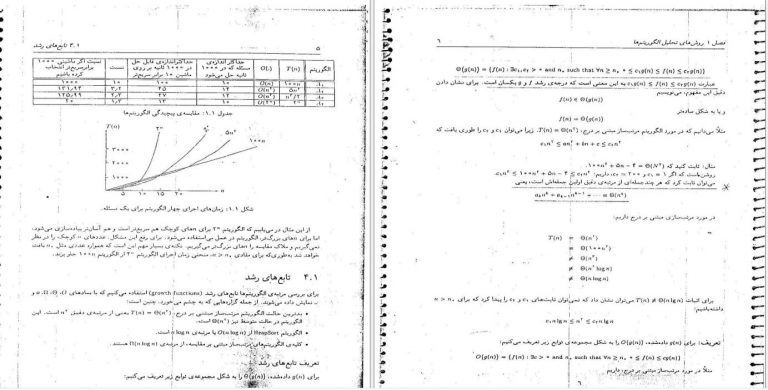 ۴.۱ تابع‌های رشد
۵
الگوریتم T(n) O(.) حداکثر اندازه‌ی مسئله که در ۱۰۰۰ ثانیه حل می‌شود حداکثر اندازه‌ی قابل حل در ۱۰۰۰ ثانیه بر روی ماشین ۱۰ برابر سریع‌تر نسبت نسبت اگر ماشینی ۱۰۰۰ برابر سریع‌تر انتخاب کرده باشیم
۱۰۰n O(n) ۱۰ ۱۰۰ ۱۰ ۱۰۰۰
۵n² O(n²) ۱۴ ۴۵ ۳٫۲
n³/۲ O(n³) ۱۲ ۲۷ ۲٫۲
۲ⁿ O(۲ⁿ) ۱۰ ۱۳ ۱٫۳
جدول ۱.۱: مقایسه‌ی پیچیدگی الگوریتم‌ها
T(n)
۳۰۰۰
۲۰۰۰
۱۰۰۰
۲ⁿ
۵n²
۱۰۰n
۵ ۱۰ ۱۵ ۲۰ ۲۵ n
شکل ۱.۱: زمان‌های اجرای چهار الگوریتم برای یک مسئله.
از این مثال در می‌یابیم که الگوریتم ۲ⁿ برای nهای کوچک هم سریع‌تر است و هم آسان‌تر پیاده‌سازی می‌شود.
اما برای nهای بزرگ‌تر، الگوریتم در عمل بی‌استفاده می‌شود. برای رفع این مشکل، عددهای n کوچک را در نظر
نمی‌گیریم و ملاک مقایسه را nهای بزرگ‌تر می‌گیریم. نکته‌ی بسیار مهم این است که همواره عددی مثل n₀ یافت
خواهد شد به‌طوری‌که برای مقادیر n > n₀ منحنی زمان اجرای الگوریتم ۲ⁿ از الگوریتم ۱۰۰n جلو بزند.
۴.۱ تابع‌های رشد
برای بررسی مرتبه‌ی الگوریتم‌ها تابع‌های رشد (growth functions) استفاده می‌کنیم که با نمادهای
نمایش داده می‌شوند. از جمله گزاره‌هایی که به چشم می‌خورد، چنین است:
• بدترین حالت الگوریتم مرتب‌ساز مبتنی بر درج، T(n) = Θ(n²) یعنی از مرتبه‌ی دقیق n² است. این
الگوریتم در حالت متوسط نیز Θ(n²) است.
• الگوریتم HeapSort از O(n log n) یا مرتبه‌ی n log n است.
• کلیه‌ی الگوریتم‌های مرتب‌ساز مبتنی بر مقایسه، از مرتبه‌ی Ω(n log n) هستند.
تعریف تابع‌های رشد
برای g(n) داده‌شده، Θ(g(n)) را به شکل مجموعه‌ی توابع زیر تعریف می‌کنیم:
فصل ۱ روش‌های تحلیل الگوریتم‌ها
۶
Θ(g(n)) = {f(n) : ∃c₁, c₂ > ۰ and n₀ such that ∀n ≥ n₀ ۰ ≤ c₁g(n) ≤ f(n) ≤ c₂g(n)}
عبارت c₁g(n) ≤ f(n) ≤ c₂g(n) به این معنی است که درجه‌ی رشد f و g یکسان است. برای نشان دادن
دقیق این مفهوم، می‌نویسیم
f(n) ∈ Θ(g(n))
و یا به شکل ساده‌تر
f(n) = Θ(g(n))
مثلاً می‌دانیم که در مورد الگوریتم مرتب‌ساز مبتنی بر درج، T(n) = Θ(n²). زیرا می‌توان c₁ و c₂ را طوری یافت که
c₁n² ≤ an² + bn + c ≤ c₂n²
مثال: ثابت کنید که ۱۰۰n² + ۵n − ۴ = Θ(N²)
روشن‌است که اگر c₁ = ۱ و c₂ = ۲۰۰، داریم: c₁n² ≤ ۱۰۰n² + ۵n − ۴ ≤ c₂n²
می‌توان ثابت کرد که هر چند جمله‌ای از مرتبه‌ی دقیق اولین جمله‌اش است، یعنی
در مورد مرتب‌ساز مبتنی بر درج داریم:
T(n) = Θ(n²)
≠ Θ(n² log n)
≠ Θ(n log n)
برای اثبات T(n) ≠ Θ(n lg n) می‌توان نشان داد که نمی‌توان ثابت‌های c₁ و c₂ را پیدا کرد که برای n > n₀
داشته‌باشیم:
c₁n lg n ≤ n² ≤ c₂n lg n
تعریف: برای g(n) داده‌شده، O(g(n)) را به شکل مجموعه‌ی توابع زیر تعریف می‌کنیم:
O(g(n)) = {f(n) : ∃c > ۰ and n₀ such that ∀n ≥ n₀ ۰ ≤ f(n) ≤ cg(n)}
مثلاً در مورد مرتب‌ساز مبتنی بر درج، داریم
۶